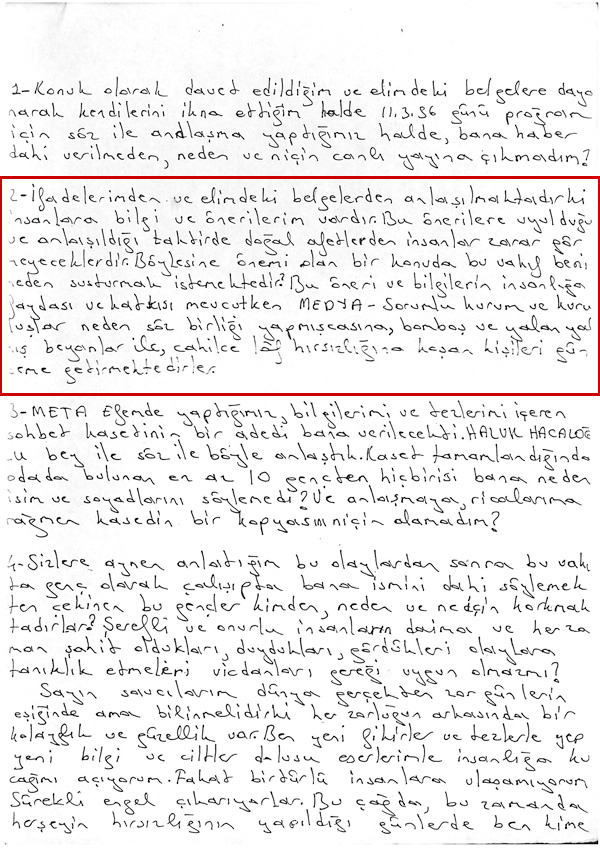 1-Konuk olarak davet edildiğim ve elimdeki belgelere daya
narak kendilerini ikna ettiğim halde 11.3.96 günü program
için söz ile andlaşma yaptığımız halde, bana haber
dahi verilmeden, neden ve niçin canlı yayına çıkmadım?
2-İfadelerimden ve elimdeki belgelerden anlaşılmaktadırki
insanlara bilgi ve önerilerim vardır. Bu önerilere uyulduğu
ve anlaşıldığı taktirde doğal afetlerden insanlar zarar gör
meyeceklerdir. Böylesine önemi olan bir konuda bu vakıf beni
neden susturmak istemektedir? Bu öneri ve bilgilerin insanlığa
faydası ve katkısı mevcutken MEDYA-Sorumlu kurum ve kuru
luşlar neden söz birliği yapmışcasına, bomboş ve yalan yal
nış beyanlar ile, cahilce lâf hırsızlığına koşan kişileri gün
deme getirmektedirler.
3-META Efemde yaptığımız, bilgilerimi ve tezlerimi içeren
sohbet kasetinin bir adedi bana verilecekti. HALUK HACALOĞ
LU bey ile söz ile böyle anlaştık. Kaset tamamlandığında
odada bulunan en az 10 gençten hiçbirisi bana neden
isim ve soyadlarını söylemedi? Ve anlaşmaya, ricalarıma
rağmen kasedin bir kopyasını niçin alamadım?
4-Sizlere aynen anlattığım bu olaylardan sonra bu vakı
fta genç olarak çalışıpta bana ismini dahi söylemek
ten çekinen bu gençler kimden, neden ve nedçin korkmak
tadırlar? Şerefli ve onurlu insanların daima ve her za
man şahit oldukları, duydukları, gördükleri olaylara
tanıklık etmeleri vicdanları gereği uygun olmazmı?
Sayın savcılarım dünya gerçekten zor günlerin
eşiğinde ama bilinmelidirki her zorluğun arkasında bir
kolaylık ve güzellik var. Ben yeni fikirler ve tezlerle yep
yeni bilgi ve ciltler dolusu eserlerimle insanlığa ku
cağımı açıyorum. Fakat birtürlü insanlara ulaşamıyorum
Sürekli engel çıkarıyorlar. Bu çağda, bu zamanda
herşeyin hırsızlığının yapıldığı günlerde ben kime